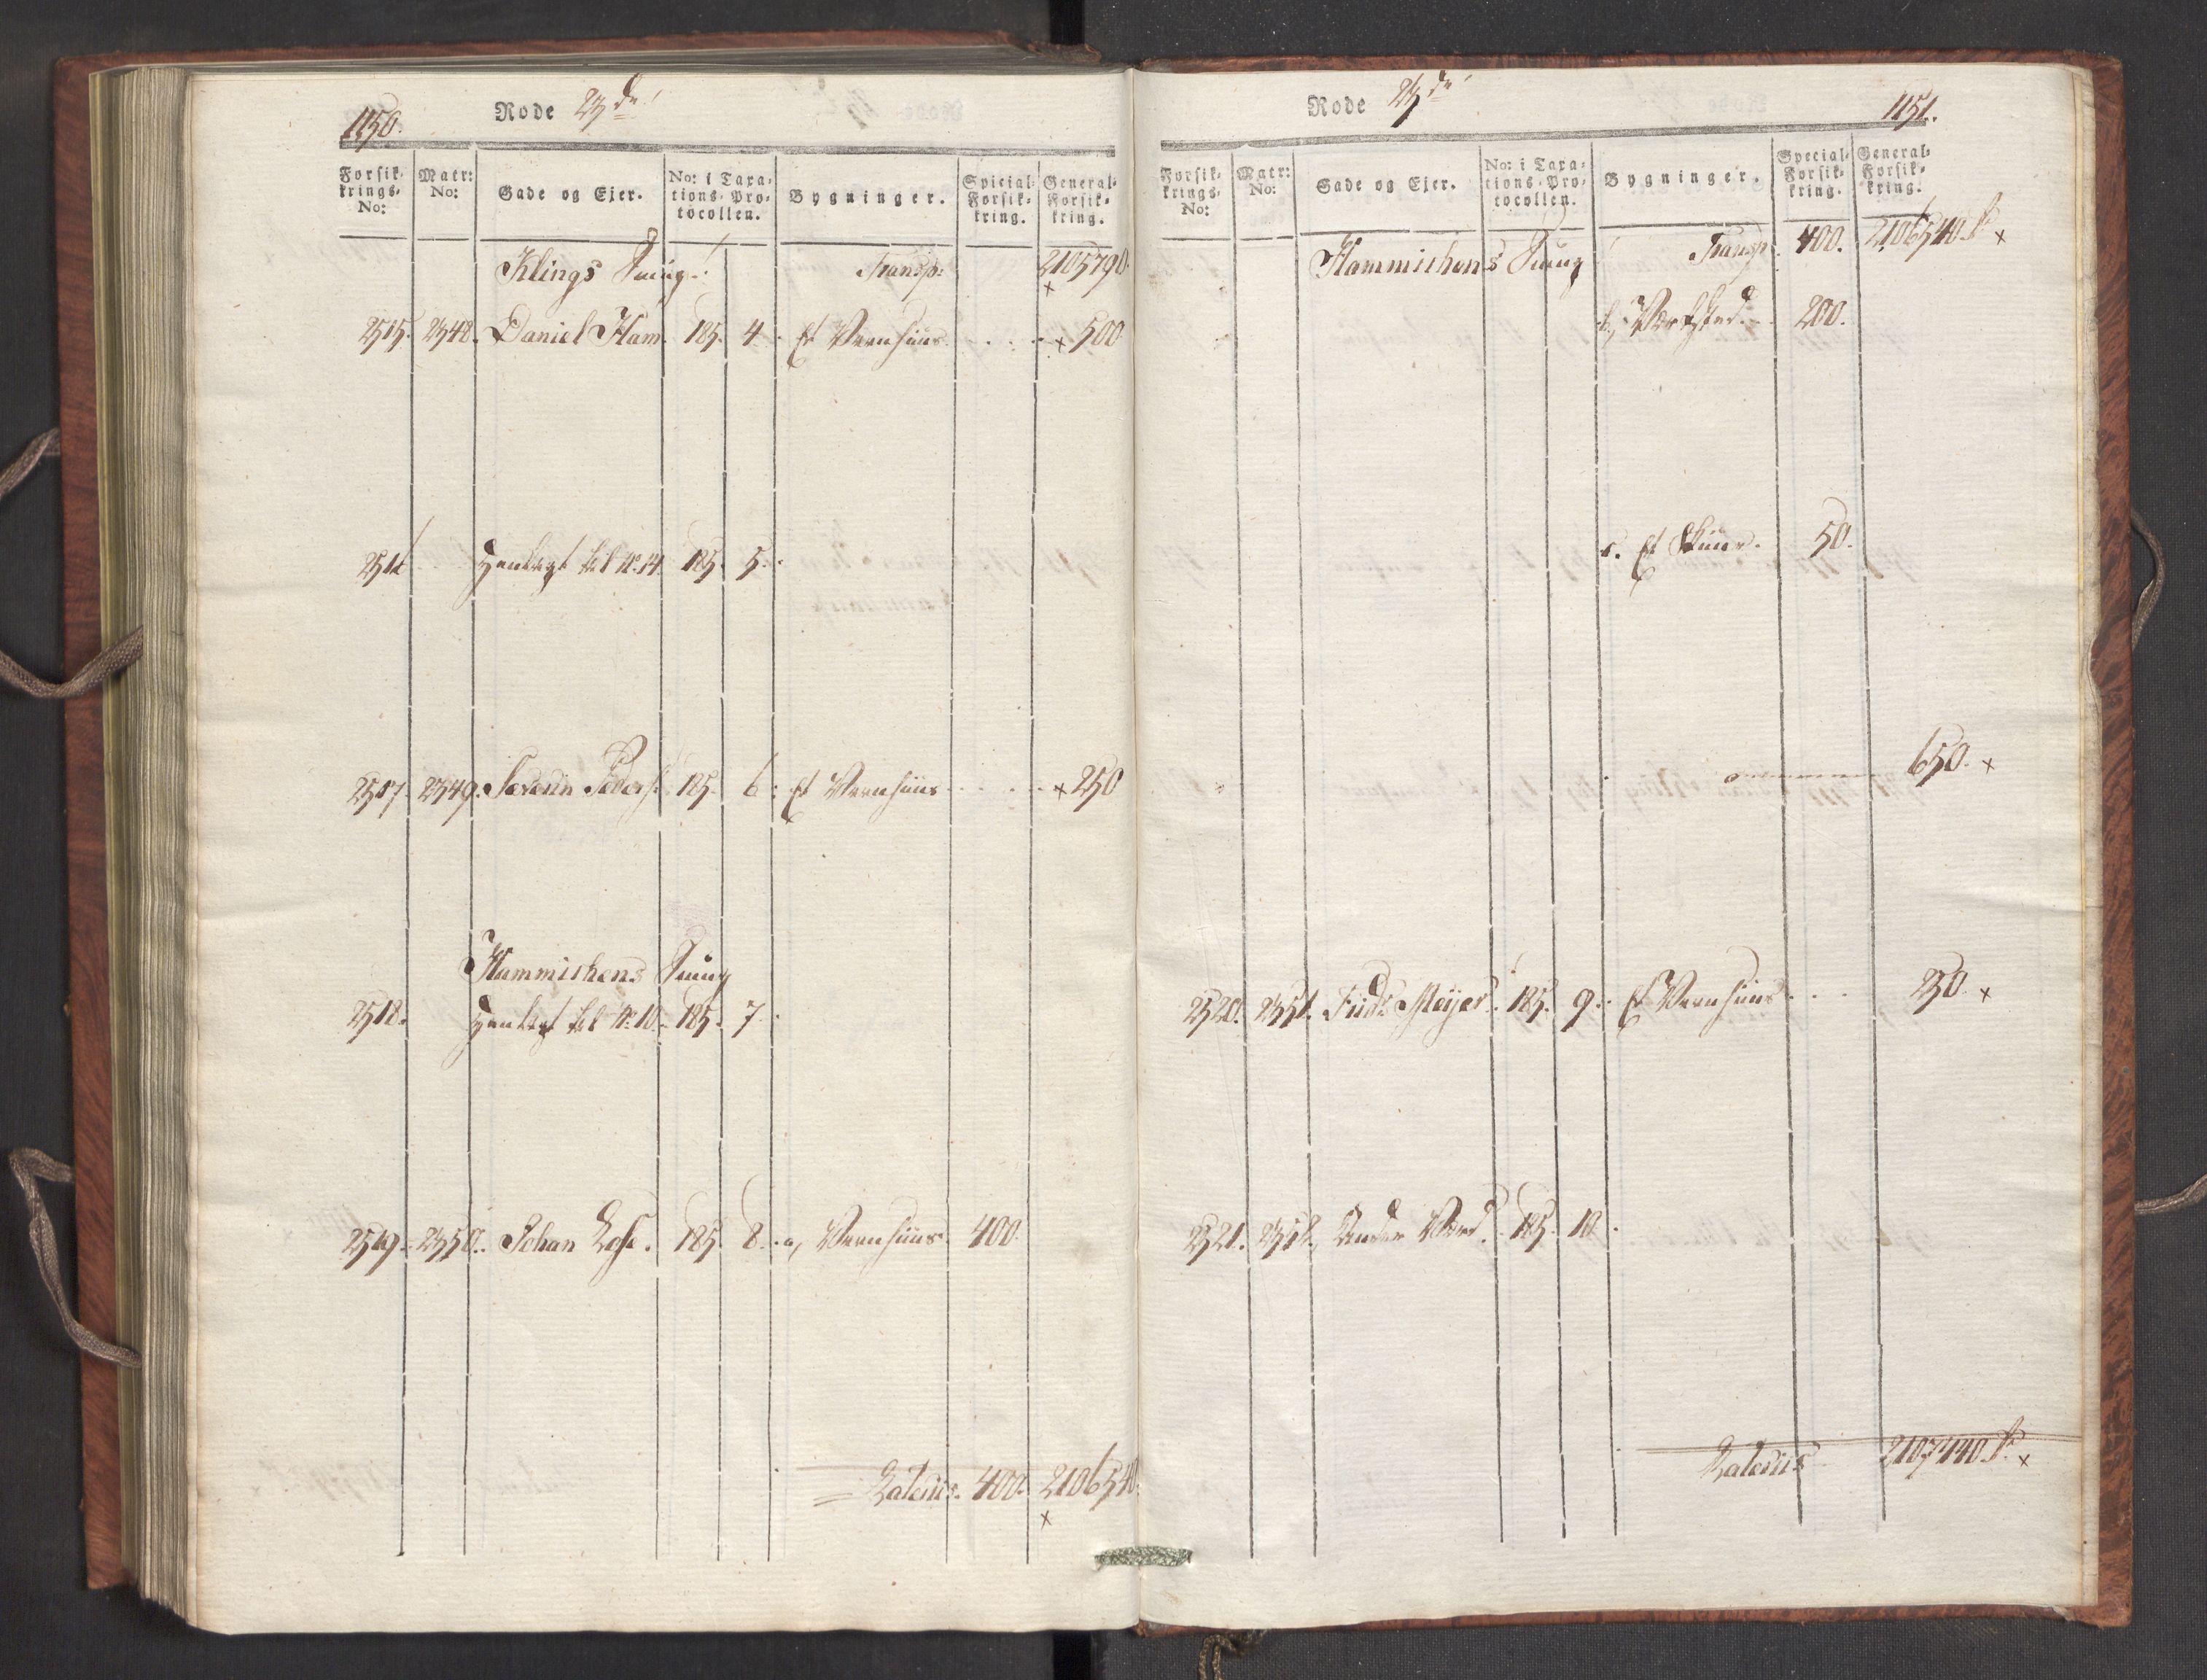 1150.
Rode 23de
Forsik-
krings-
No:
Matr:
No:
Gade og Ejer.
No: i Taxa-
tions-Pro-
tocollen.
Bygninger.
Special-
Forsik-
kring.
General-
Forsik-
kring.
Klings Smug. Transp: 2105790.
x
2515. 2348. Daniel Ham. 185. 4. Et Vaanhuus x 500
2516 Henlagt til No. 14. 185. 5.
2517. 2349. Severin Peders. 185. 6. Et Vaanhuus x 250
Hammichens Smug
2518. Henlagt til No. 10. 185. 7.
2519. 2350. Johan Lose. 185. 8. a, Vaanhuus 400.
Lateris. 400. 2106540.
x
Rode 23de
1151.
Forsik-
krings-
No:
Matr:
No:
Gade og Ejer.
No: i Taxa-
tions-Pro-
tocollen.
Bygninger.
Special-
Forsik-
kring.
General-
Forsik-
kring.
Hammichens Smug Transp. 400. 2106540. x
b, Værksted. 200.
c. Et Skuur. 50.
650. x
2520. 2351. Fridr. Meyer. 185. 9. Et Vaanhuus 250. x
2521. 2352. 185. 10.
Lateris 2107440. x